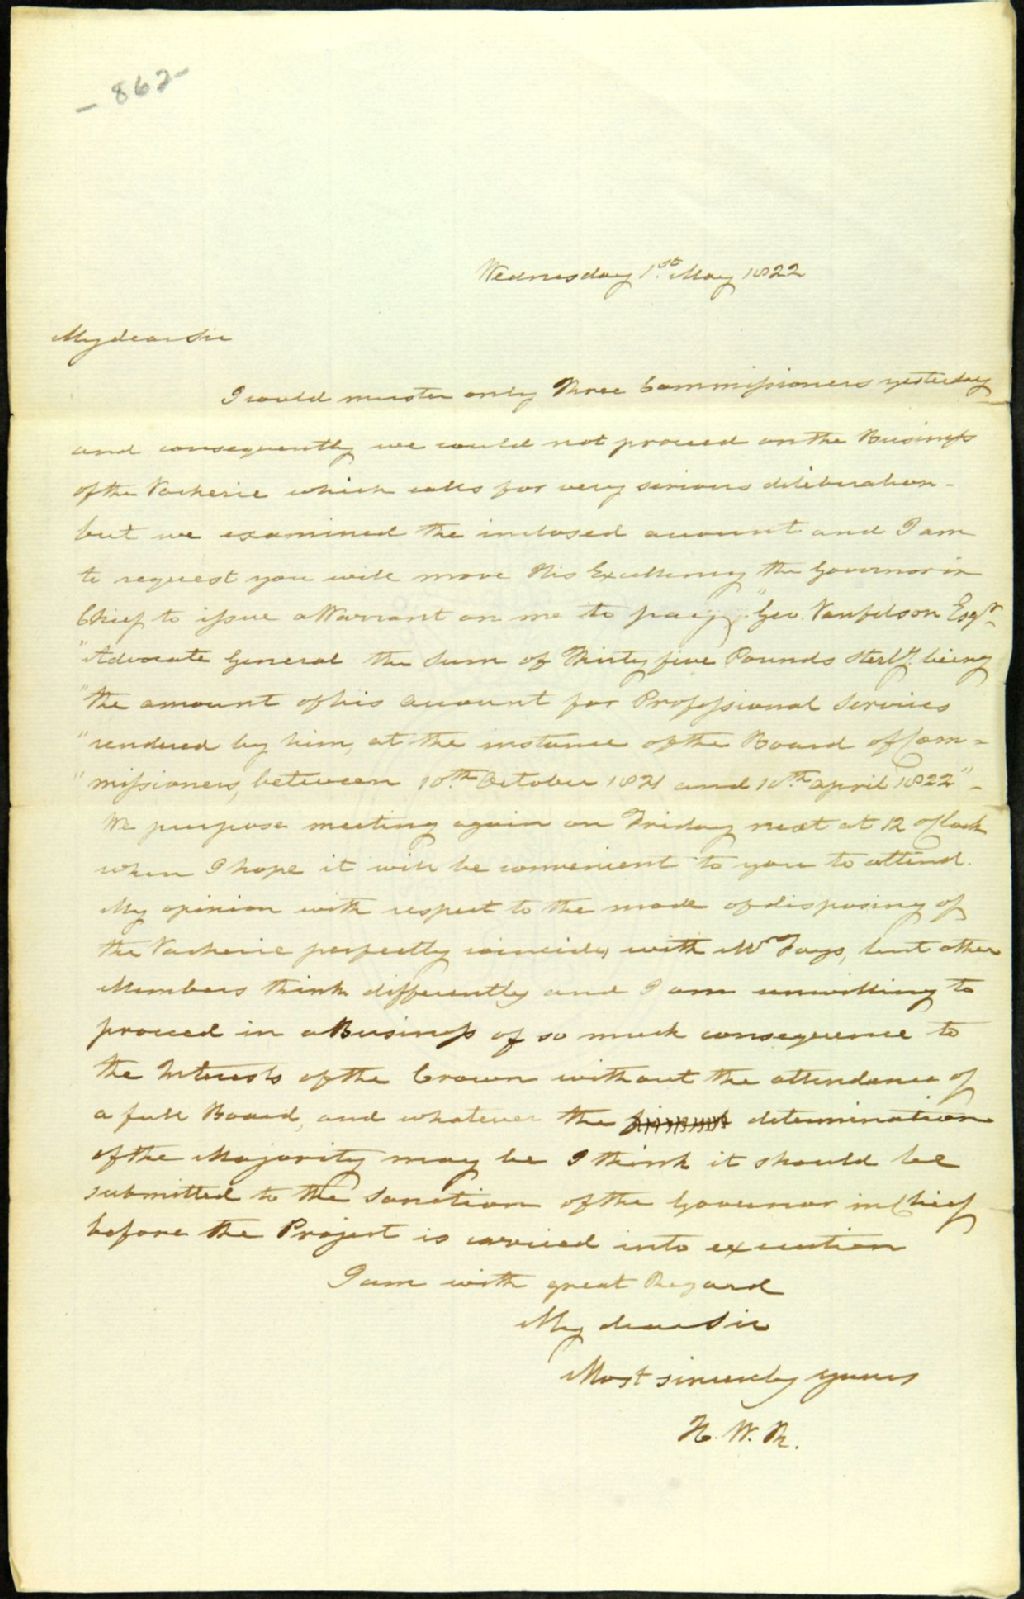 - 862 -
Wednesday 1st. May 1822
My dear Sir
I could muster only Three Commissioners yesterday
and consequently we could not proceed on the Business
of the Vacherie which calls for very serious deliberation -
but we examined the inclosed account and I am
to request you will move His Excellency the Governor in
Chief to issue a Warrant on me to pay "Geo. Vanfelson Esqr.
"Advocate General the Sum of Thirty five Pounds Sterlg. being
"the amount of his account for Professional Services
"rendered by him, at the instance of the Board of Com-
"missioners, between 10th. October 1821 and 10th. april 1822" -
We purpose meeting again on Friday next at 12 oClock
when I hope it will be convenient to you to attend.
My opinion with respect to the mode of disposing of
the Vacherie perfectly coincides with Mr. Days, but other
Members think differently and I am unwilling to
proceed in a Business of so much consequence to
the Interests of the Crown without the attendance of
a full Board, and whatever the determination
of the Majority may be I think it should be
submitted to the Sanction of the Governor in Chief
before the Project is carried into execution
I am with great Regard
My dear Sir
Most sincerely yours
H. W. R.